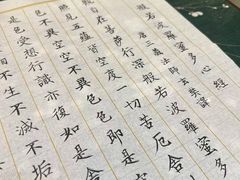 般若波羅蜜多心經
唐三藏法師玄奘譯
觀自在菩薩行深般若波羅蜜多
照見五蘊皆空度一切苦厄舍
色不異空空不異色色即是
是色受想行識亦復如是舍
不生不滅不垢